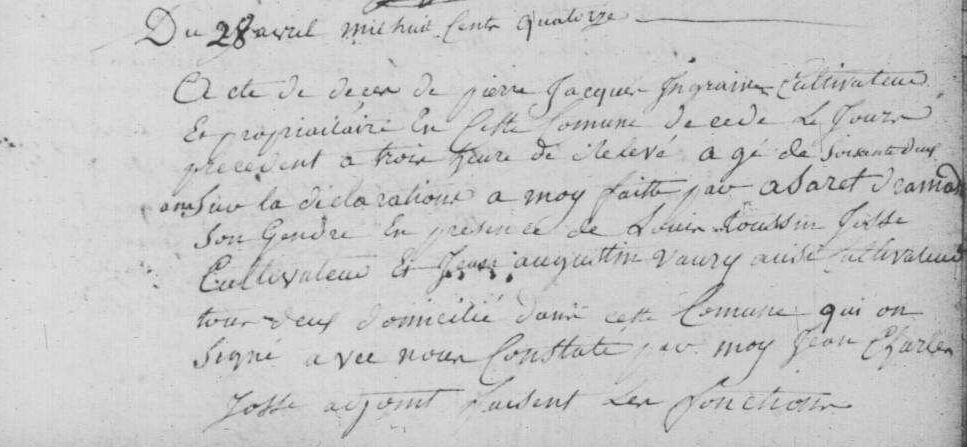 Du 28 avril mil huit Cents quatorze
Acte de deces de pierre Jacques Ingrain Cultivateur
Et propriaitaire En Cette Comune decede Le Jours
precedent a trois heure de relevé agé de soisante deux
ans Sur la déclarations a moy faitte par
Son Gendre En presence de Louis Roussin Josse
Cultivateur Et Jean augustin Vaury aussi Cultivateur
tous deux domicilié dans cette Comune qui on
Signé avec nous Constaté par moy Jean Charles
Josse adjoint faisent Les fonctions